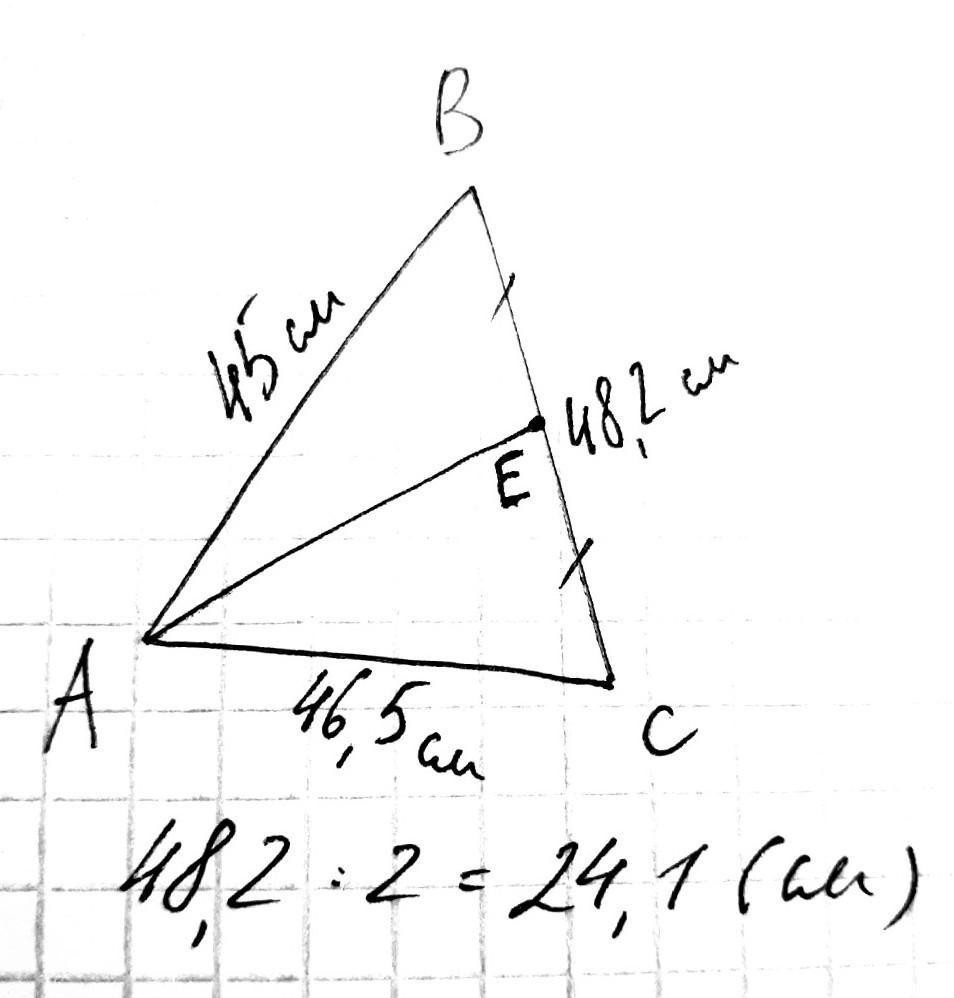 B
45 см
48,2 см
E
A
46,5 см
C
48,2 : 2 = 24,1 (см)